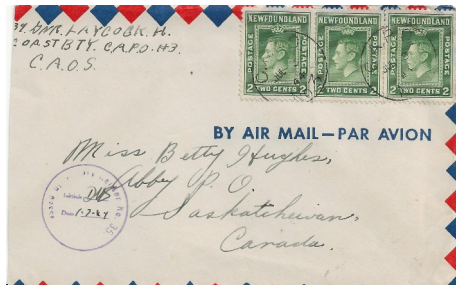 GNR. LAYCOCK. H.
COAST BTY. C.A.P.O. #3
C.A.O.S.
NEWFOUNDLAND
POSTAGE
POSTAGE
2 TWO CENTS 2
NEWFOUNDLAND
POSTAGE
POSTAGE
2 TWO CENTS 2
NEWFOUNDLAND
POSTAGE
POSTAGE
2 TWO CENTS 2
BY AIR MAIL—PAR AVION
Miss Betty Hughes,
Abby P. O.
Saskatchewan,
Canada.
No. 35
DB
Date